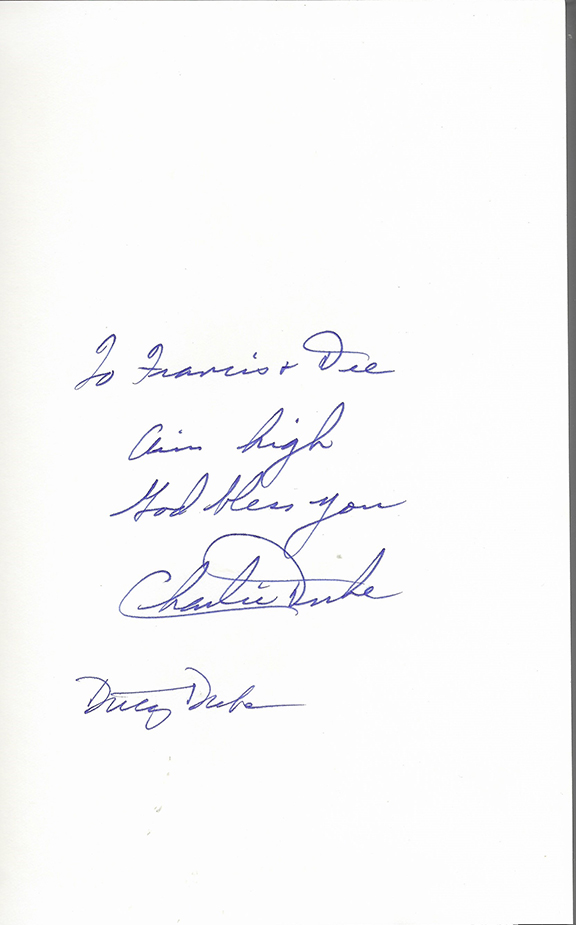 To Francis + Dee
Aim high
God bless you
Charlie Duke
Dotty Duke